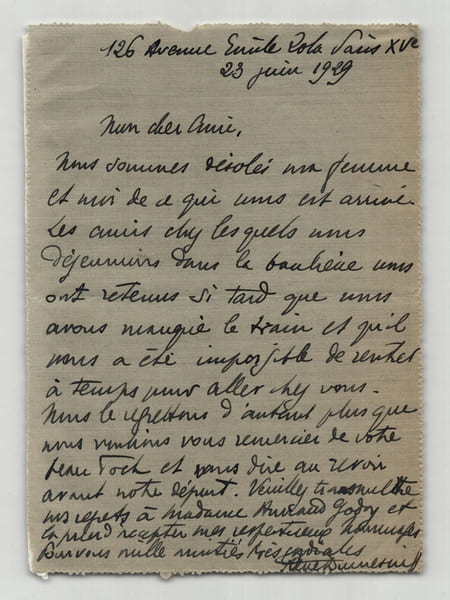 126 Avenue Emile Zola Paris XVe
23 juin 1929
Mon cher Ami,
Nous sommes désolés ma femme
et moi de ce qui nous est arrivé.
Les amis chez lesquels nous
déjeunions dans la banlieue nous
ont retenus si tard que nous
avons manqué le train et qu'il
nous a été impossible de rentrer
à temps pour aller chez vous.
Nous le regrettons d'autant plus que
nous voulions vous remercier de votre
beau Foch et vous dire au revoir
avant notre départ. Veuillez transmettre
nos regrets à Madame Armand Godoy et
la prier d'accepter mes respectueux hommages
Pour vous mille amitiés très cordiales
René Dumesnil